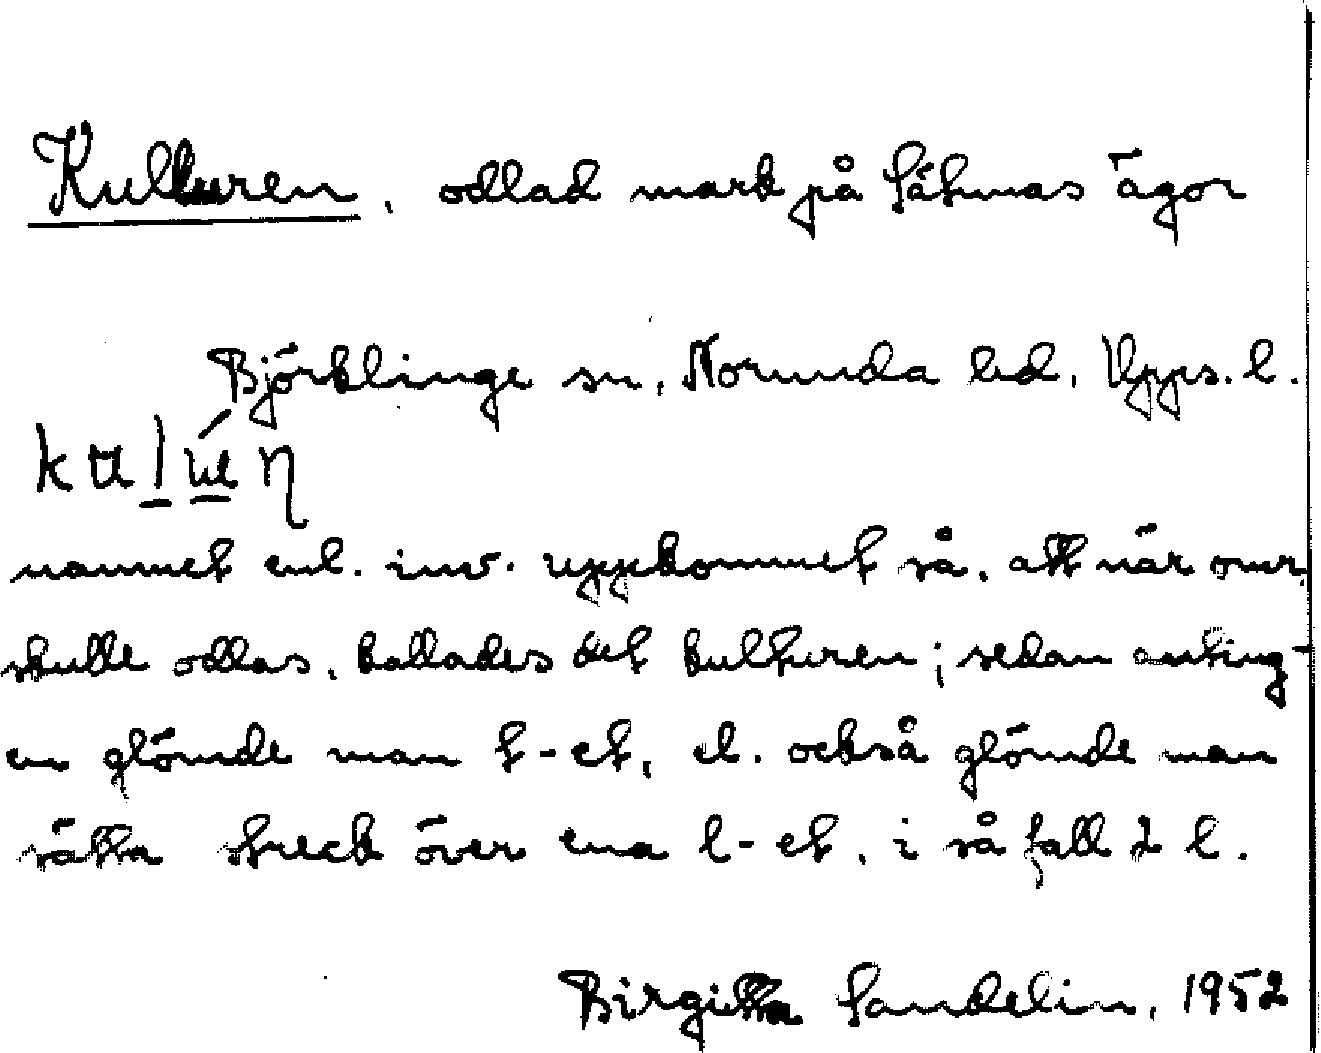 Kulluren, odlad mark på Sätunas ägor
Björklinge sn, Norunda hd, Upps. l.
namnet enl. inv. uppkommet så, att när omr.
skulle odlas, kallades det kulturen; sedan anting-
en glömde man t-et, el. också glömde man
sätta streck över ena l-et, i så fall 2 l.
Birgitta Sandelin, 1952